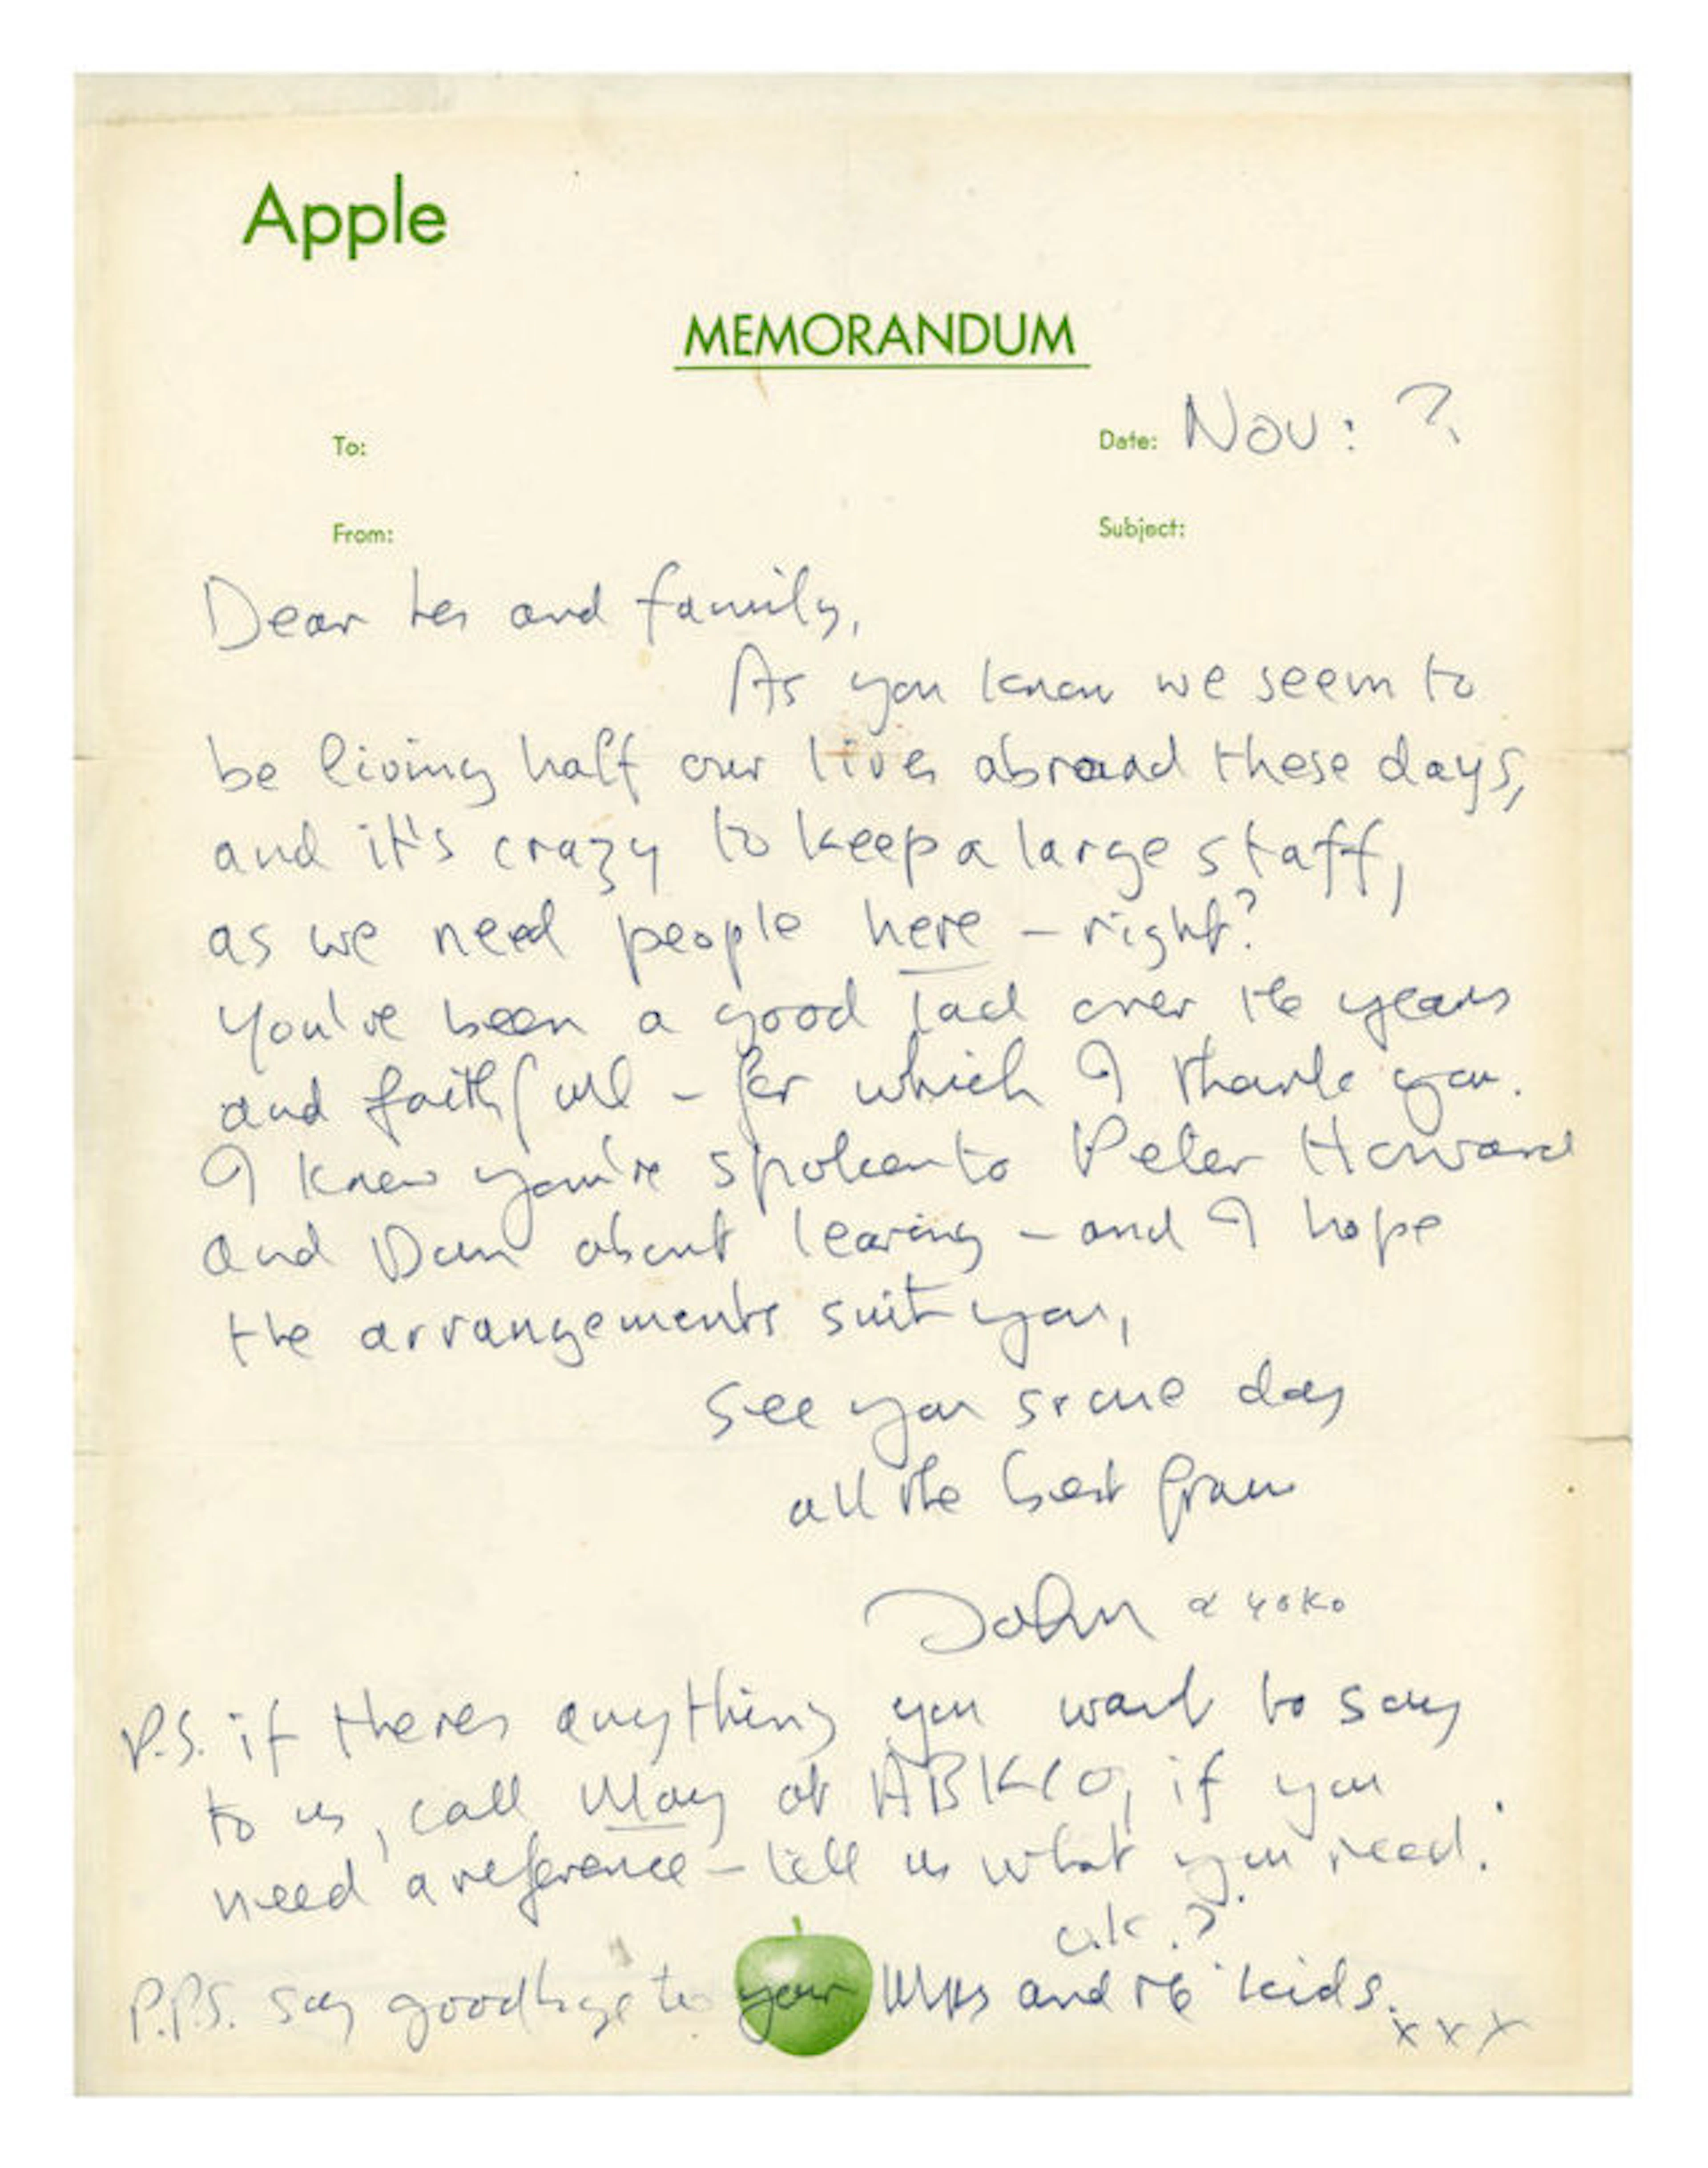 Apple
MEMORANDUM
To:
Date: Nov: ?
From:
Subject:
Dear Les and family,
As you know we seem to
be living half our lives abroad these days,
and it's crazy to keep a large staff,
as we need people here – right?
You've been a good lad over the years
and faithfull – for which I thank you.
I know you've spoken to Peter Howard
and Dan about leaving – and I hope
the arrangements suit you,
see you some day
all the best from
John & yoko
P.S. if theres anything you want to say
to us, call May at ABKCO, if you
need a reference – tell us what you need.
o.k.?
P.P.S. say goodbye to your Mrs and the kids.
x x x